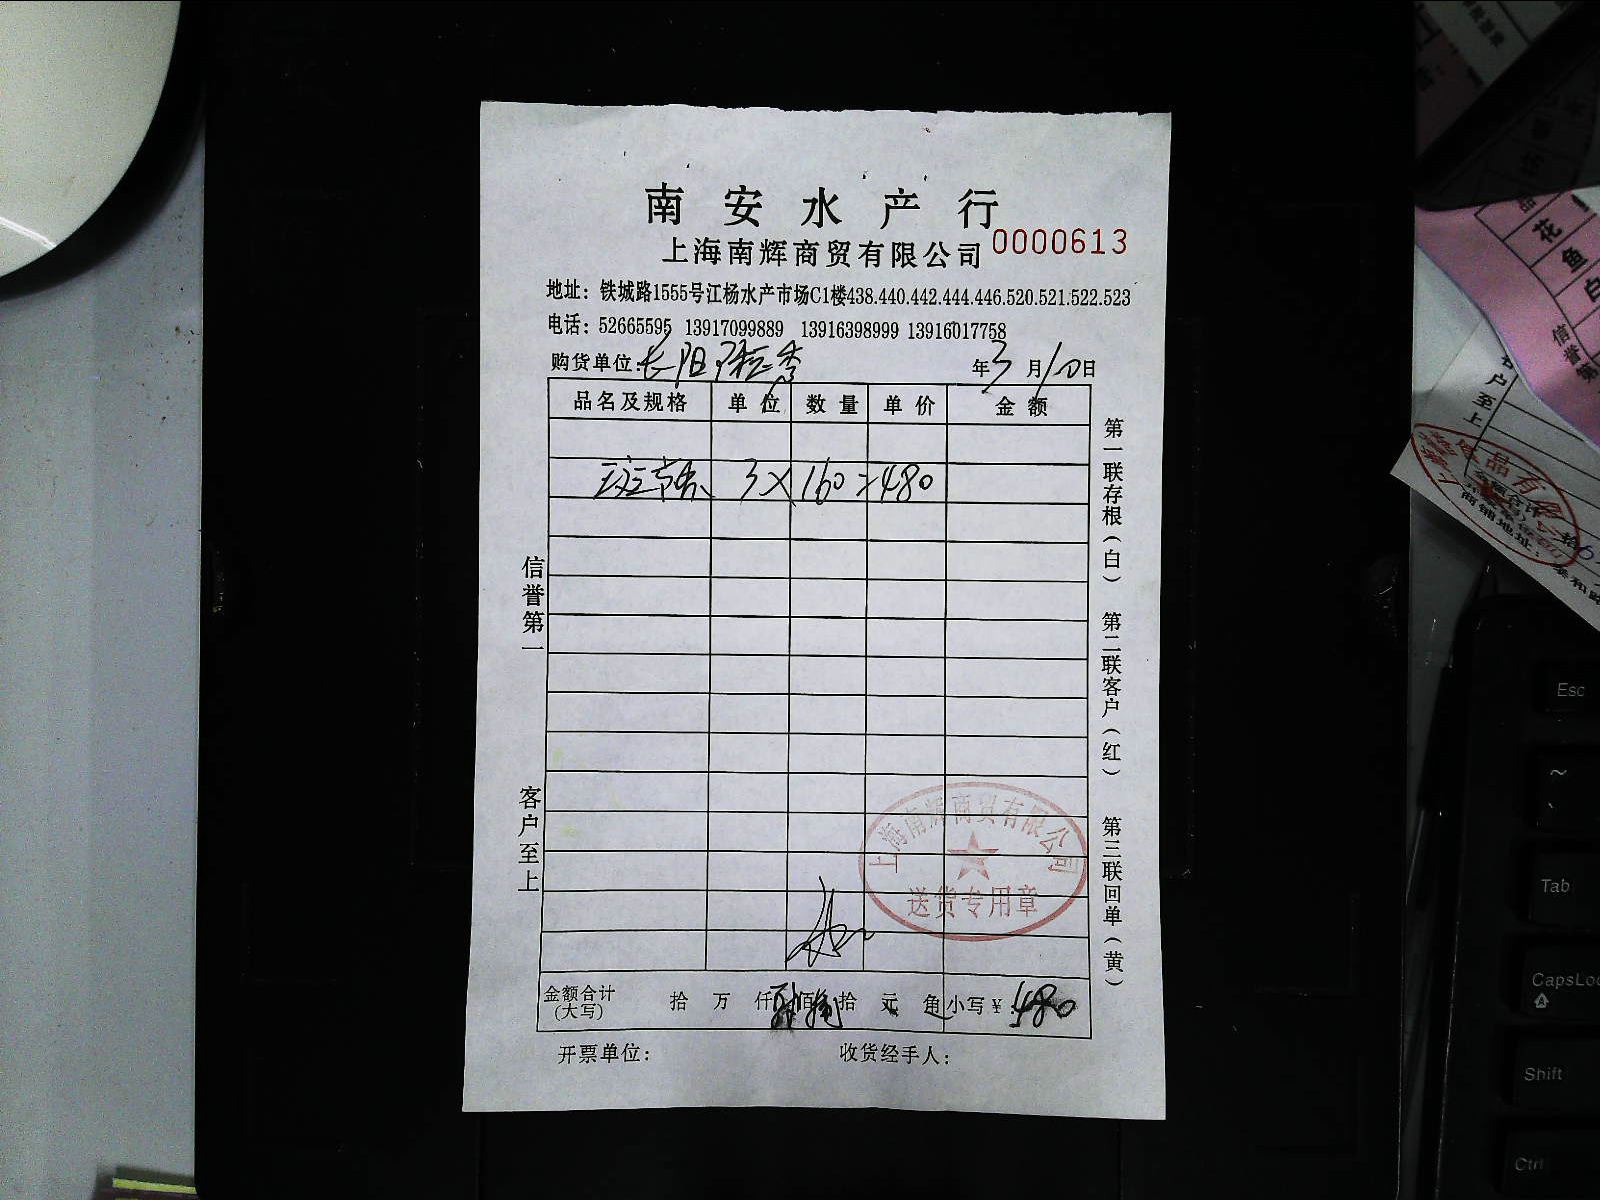 南安水产行
上海南辉商贸有限公司 0000613
地址：铁城路1555号江杨水产市场C1楼438.440.442.444.446.520.521.522.523
电话：52665595 13917099889 13916398999 13916017758
购货单位：长阳 年3月10日
品名及规格 单位 数量 单价 金额
斑节 3×160=480
信誉第一
客户至上
第一联存根（白） 第二联客户（红） 第三联回单（黄）
上海南辉商贸有限公司
送货专用章
金额合计（大写） 拾 万 仟 肆 佰 捌 拾 元 角 小写¥：480
开票单位： 收货经手人：
花
鱼
白
信誉第
客户至上
商铺地址：
泰和路
Esc
~
Tab
CapsLoc
Shift
Ctrl